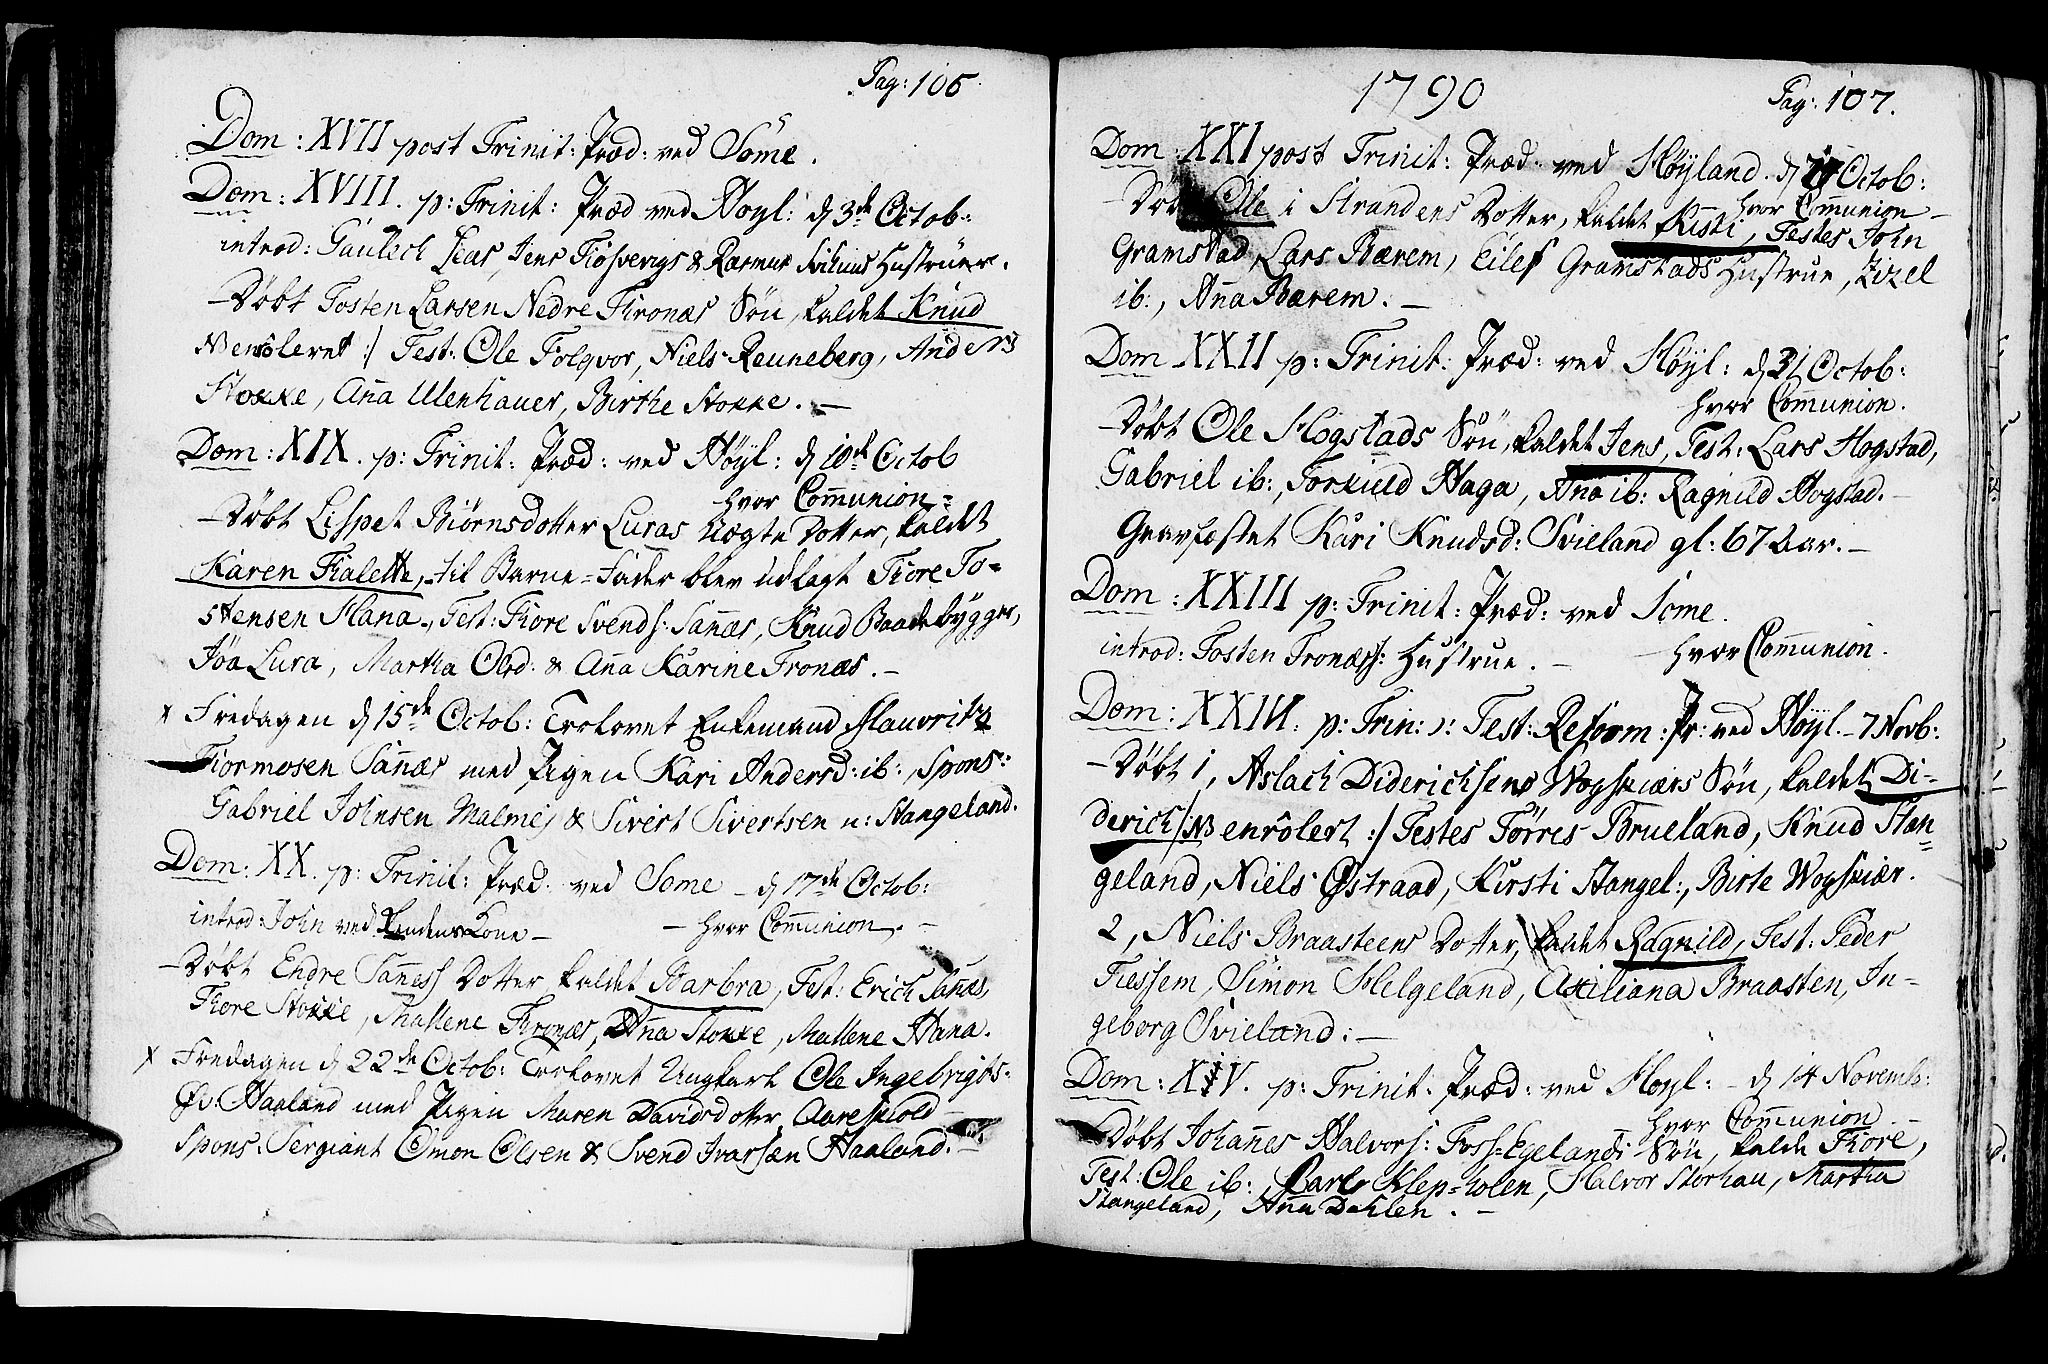 Pag: 106
Dom: XVII post Trinit: Præd: ved Some.
Dom: XVIII. p: Trinit: Præd ved Høyl: d 3de Octob:
introd: Gautech Leas, Jens Tiøsverigs & Rasmus Hustruer.
Døbt Tosten Larsen Nedre Tronæs Søn, kaldet Knud
NB enroleret :/ Test: Ole Folqvor, Niels Renneberg, Anders
Stokke, Aña Ulenhauer, Birthe Stokke. —
Dom: XIX. p: Trinit: Præd: ved Høyl: d 10de Octob
hvor Com̄union =
— Døbt Lispet Biørnsdotter Luras Uægte Dotter, kaldet
Karen Kialette, til Barne-Fader blev udlagt Tiore To=
stensen Hana, Test: Tiore Svends: Sañæs, Knud Baadebygger,
Jøa Lura, Martha Olrd: & Aña Karine Tronæs. —
x Fredagen d 15de Octob: Trolovet Enkemand Mauritz
Tiormosen Sañæs med Pigen Kari Andersd: ib:, Spons::
Gabriel Johnsen Malmej & Sivert Sivertsen n: Stangeland.
Dom: XX. p: Trinit: Præd. ved Some — d 17de Octob:
introd: John ved Rendens Kone — — hvor Com̄union. —
— Døbt Endre Sañess Dotter kaldet Barbra, Test: Erich Sañæs,
Tiore Stokke, Mallene Tronæs, Aña Stokke, Mallene Hana.
x Fredagen d 22de Octob: Trolovet Ungkarl Ole Ingebrigts:
Øv: Haaland med Pigen Maren Davidsdotter Aareskiold —
Spons: Sergiant Omon Olsen & Svend Ivarsen Haaland. —
1790
Pag: 107.
Dom: XXI post Trinit: Præd: ved Høyland. d Octob:
hvor Com̄union —
— Døbt Ole i Strandens Dotter, kaldet Kisti, Testes John
Gramstad, Lars Bærem, Eilef Gramstads Hustrue, Zizel
ib:, Aña Bærem. —
Dom XXII p: Trinit: Præd: ved Høyl: d 31 Octob:
hvor Com̄union.
— Døbt Ole Hogstads Søn, kaldet Jens, Test: Lars Hogstad,
Gabriel ib:, Torkuld Haga, Aña ib: Ragnild Hogstad. —
Gravfæstet Kari Knudsd: Svieland gl: 67 Aar. —
Dom: XXIII p: Trinit: Præd: ved Some.
introd: Tosten Tronæss: Hustrue. — — hvor Com̄union.
Dom: XXIII. p: Trin: ɔ: Fest: Reform: Pr: ved Høyl. — 7 Novb:
— Døbt 1, Aslach Diderichsens Wogskiærs Søn, kaldet Di-
derich /: NB enrolert :/ Testes Tørres Brueland, Knud Stan=
geland, Niels Østraad, Kirsti Stangel:, Birte Wogskiær.
2, Niels Braasteens Dotter, kaldet Ragnild, Test: Peder
Tiessem, Simon Helgeland, Axeliana Braasten, In=
geborg Svieland: —
Dom: XIV. p: Trinit: Præd: ved Høyl: — d 14 Novemb:
hvor Com̄union —
— Døbt Johañes Halvors: Foss-Egelands Søn, kalde Tiore,
Test: Ole ib:, Klep-holen, Halvor Storhau, Martha
Stangeland, Aña Dahlen. —